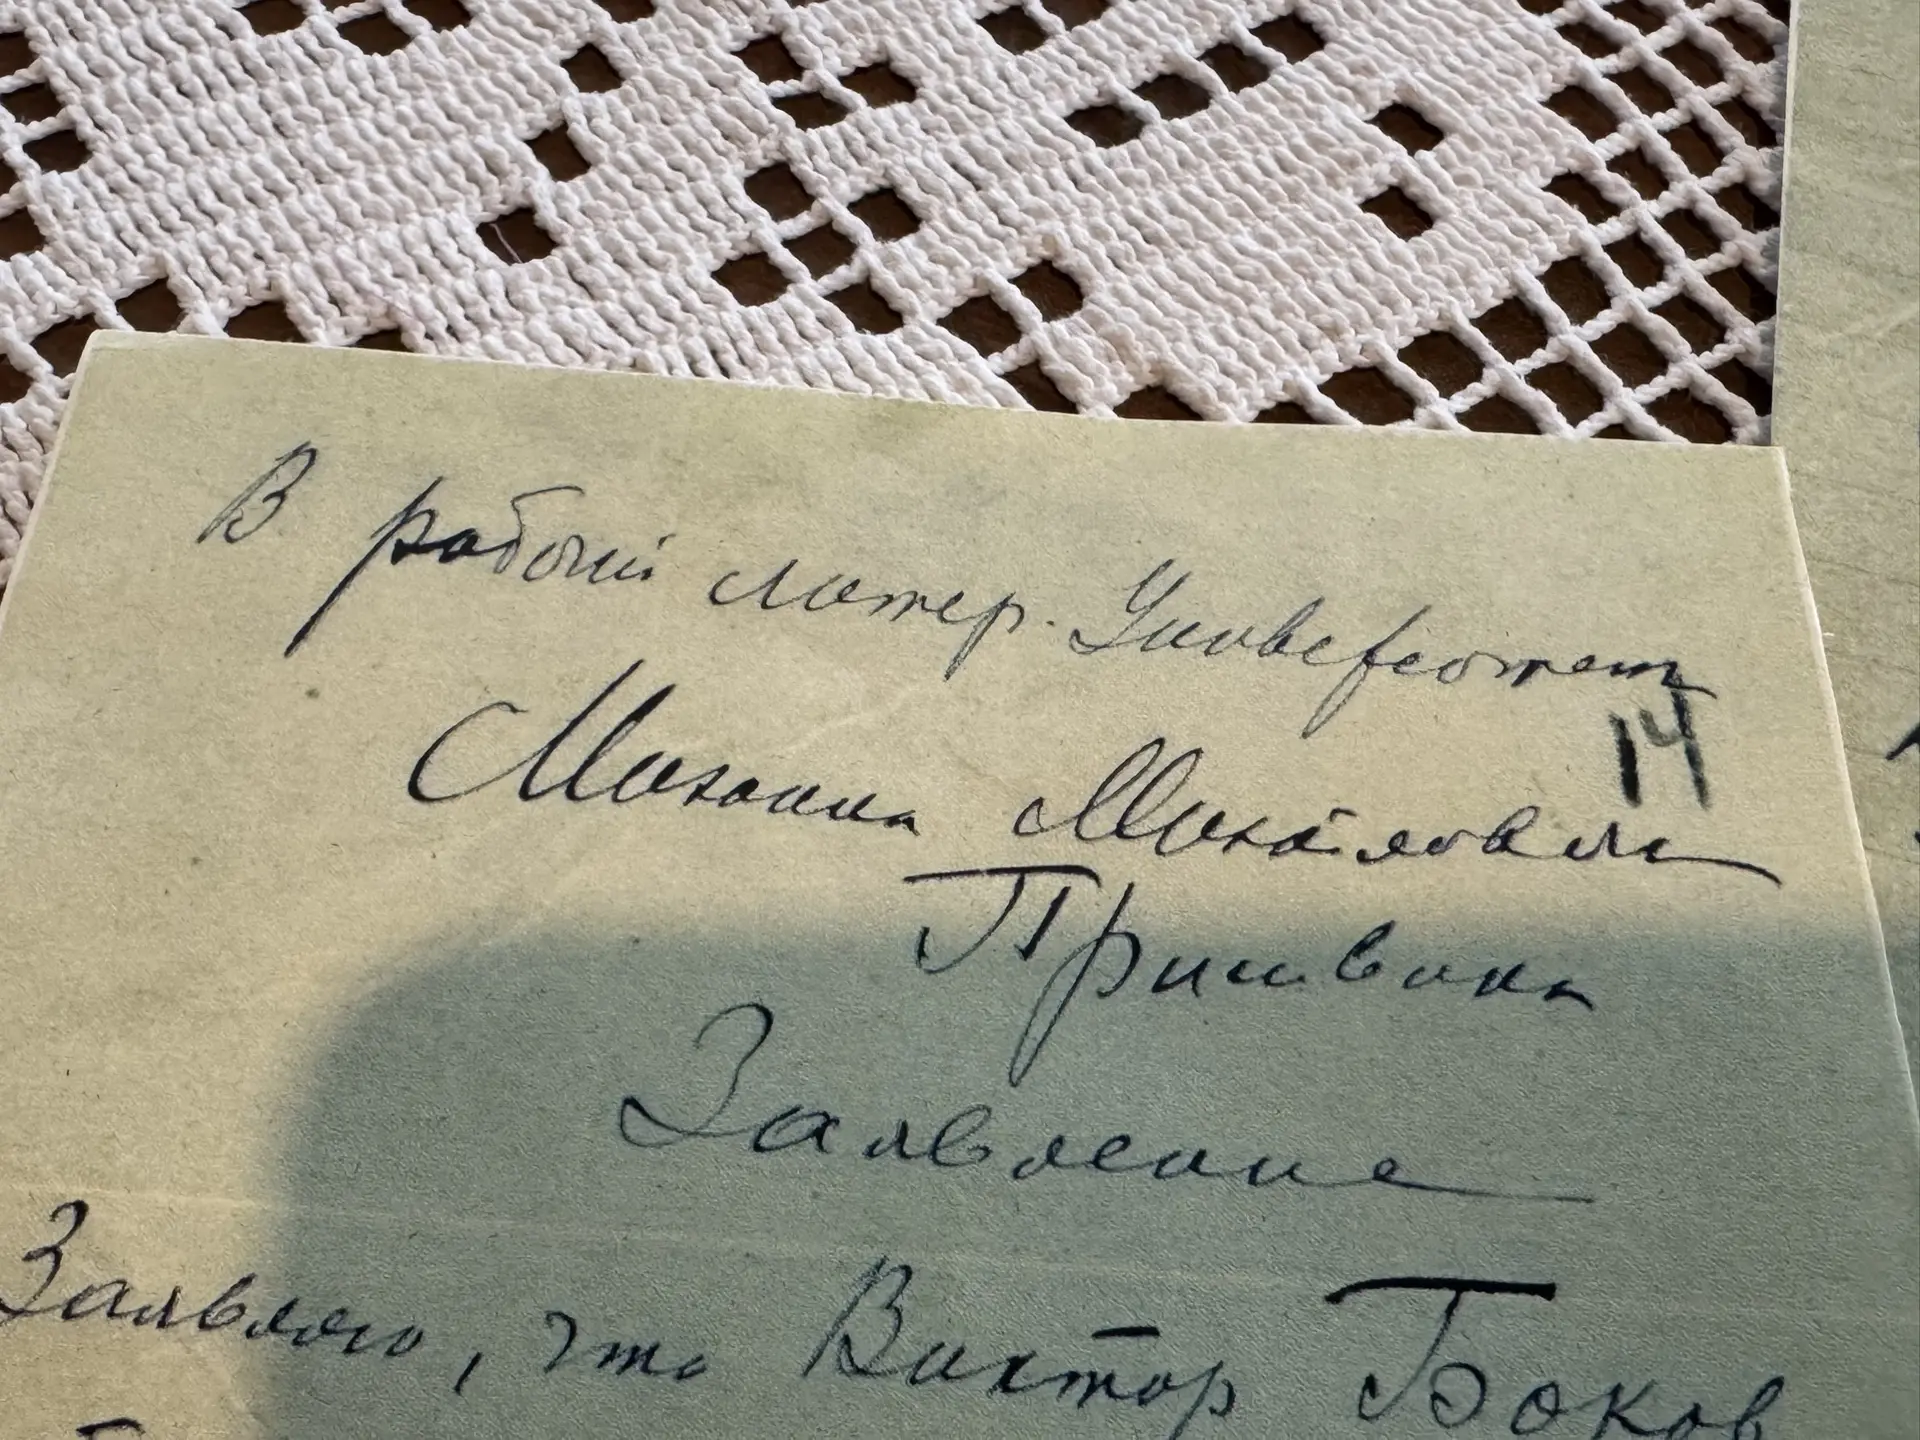 В рабочий литер. Университет
14
Михаила Михайловича
Пришвина
Заявление
Заявляю, что Виктор Боков